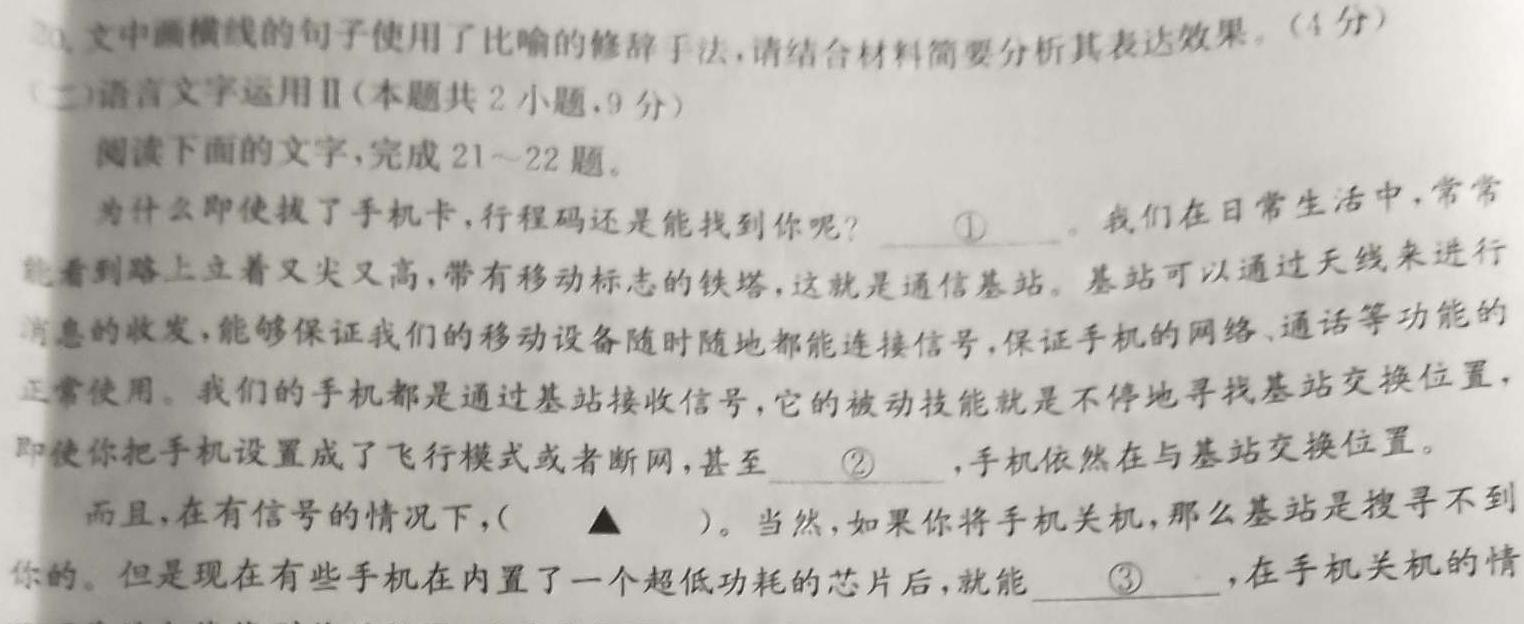 20. 文中画横线的句子使用了比喻的修辞手法,请结合材料简要分析其表达效果。(4 分)
(二)语言文字运用Ⅱ(本题共 2 小题,9 分)
阅读下面的文字,完成 21～22 题。
为什么即使拔了手机卡,行程码还是能找到你呢? ① 。我们在日常生活中,常常
能看到路上立着又尖又高,带有移动标志的铁塔,这就是通信基站。基站可以通过天线来进行
消息的收发,能够保证我们的移动设备随时随地都能连接信号,保证手机的网络、通话等功能的
正常使用。我们的手机都是通过基站接收信号,它的被动技能就是不停地寻找基站交换位置,
即使你把手机设置成了飞行模式或者断网,甚至 ② ,手机依然在与基站交换位置。
而且,在有信号的情况下,( ▲ )。当然,如果你将手机关机,那么基站是搜寻不到
你的。但是现在有些手机在内置了一个超低功耗的芯片后,就能 ③ ,在手机关机的情